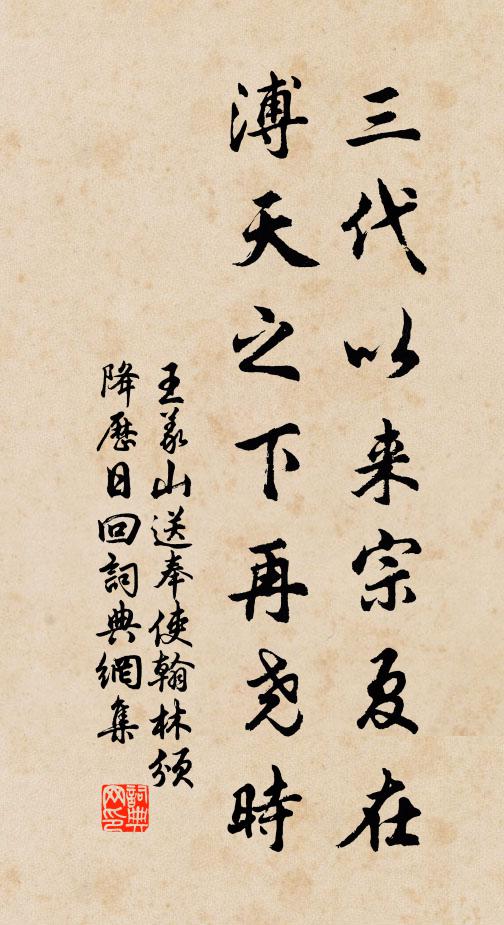 三代以来宗夏在
溥天之下再尧時
王義山送奉使翰林頒
降歷日回詞典網集
詞典
网印